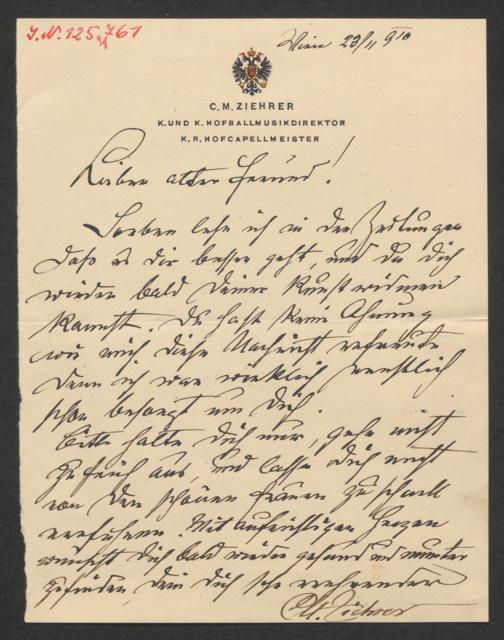 J.N. 125.761
Wien 23/11 910
C. M. ZIEHRER
K. UND K. HOFBALLMUSIKDIREKTOR
K. R. HOFCAPELLMEISTER
Lieber alter Freund!
Soeben lese ich in den Zeitungen
daß es dir besser geht, und du dich
wieder bald Deiner Kunst widmen
kannst. Du hast keine Ahnung
wie mich diese Nachricht erfreute
denn ich war wirklich ernstlich
schon besorgt um Dich.
Bitte halte Dich nur, gehe nicht
zu früh aus, und lasse Dich nicht
von den schönen Frauen zu schnell
verführen. Mit aufrichtigen Herzen
wünscht Dich bald wieder gesund und munter
zu finden, Dein Dich sehr verehrender
CM. Ziehrer